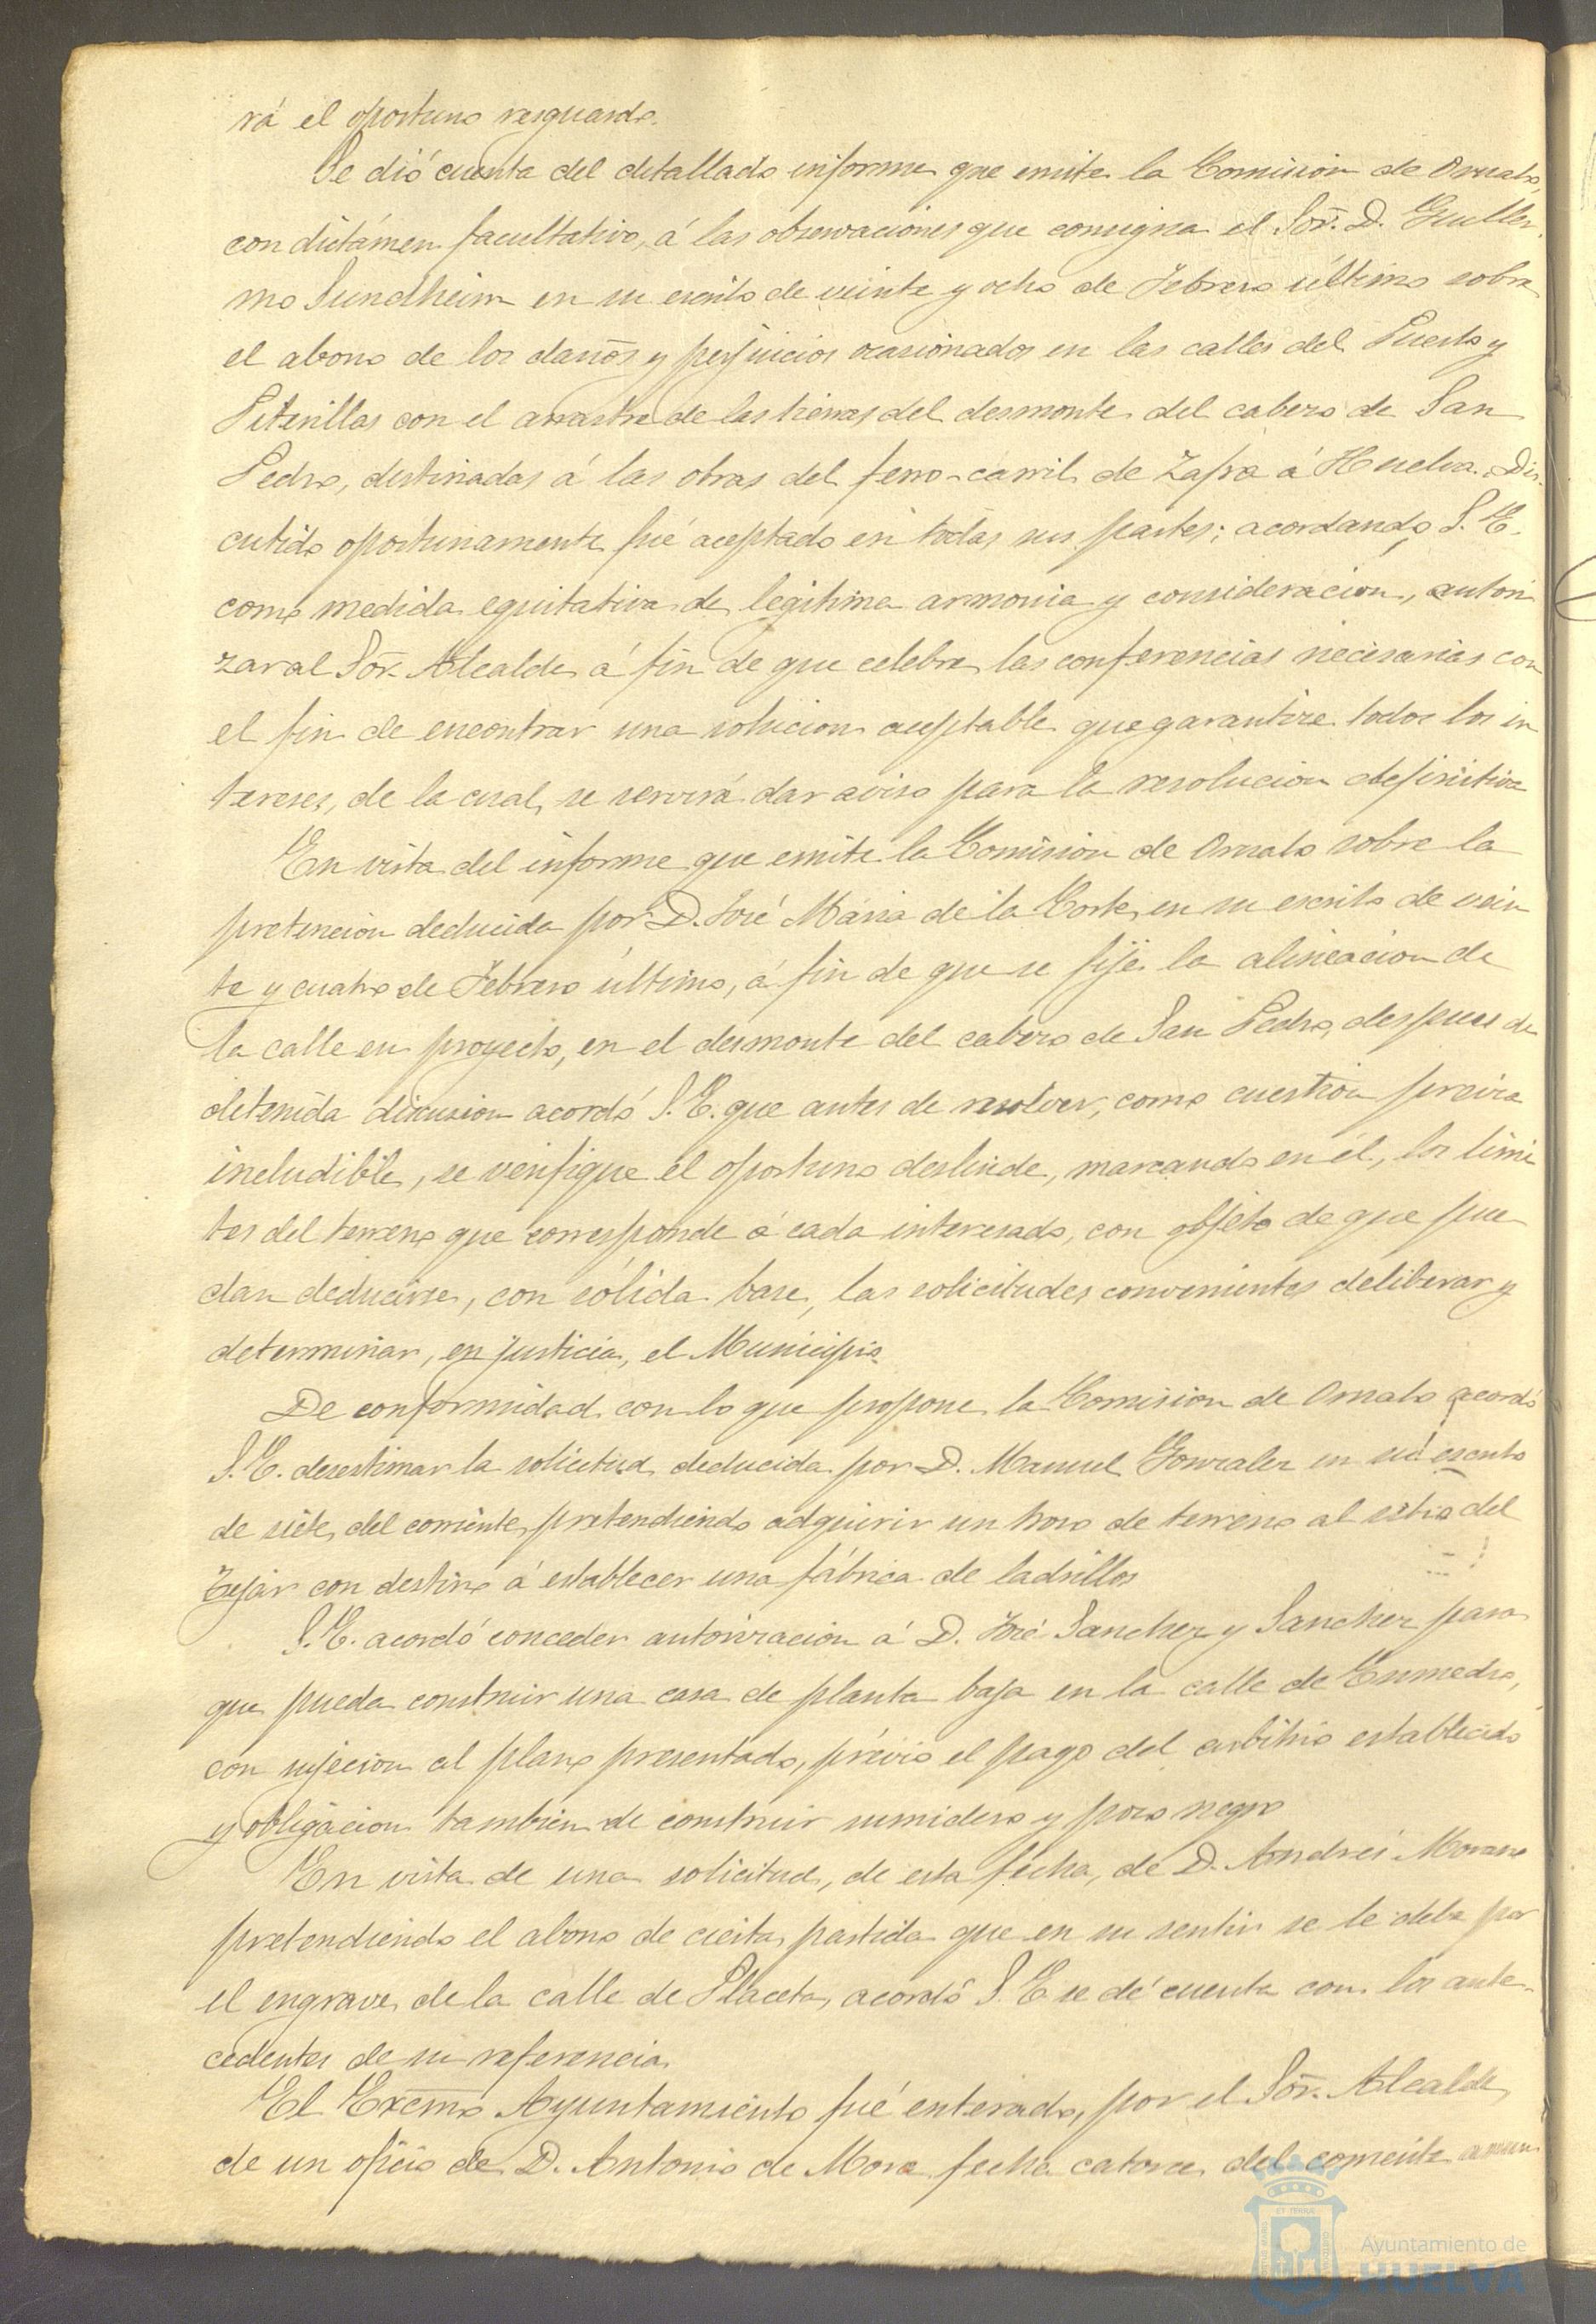 rá el oportuno resguardo.
Se dió cuenta del detallado informe que emite la Comision de Ornato,
con dictámen facultativo, á las observaciones que consigna el Sor. D. Guiller-
mo Sundheim en su escrito de veinte y ocho de Febrero último sobre
el abono de los daños y perjuicios ocasionados en las calles del Puerto y
Peterillas con el arrastre de las tierras del desmonte del cabezo de San
Pedro, destinadas á las obras del ferro-carril de Zafra á Huelva. Dis-
cutido oportunamente fué aceptado en todas sus partes; acordando S. E.
como medida equitativa de legitima armonia y consideracion, autori
zar al Sor. Alcalde á fin de que celebre las conferencias necesarias con
el fin de encontrar una solucion aceptable que garantize todos los in
tereses, de la cual, se servirá dar aviso para la resolucion definitiva
En vista del informe que emite la Comision de Ornato sobre la
pretencion deducida por D. José Maria de la Corte, en su escrito de vein
te y cuatro de Febrero último, á fin de que se fije la alineacion de
la calle en proyecto, en el desmonte del cabezo de San Pedro, despues de
detenida discusion acordó S. E. que antes de resolver, como cuestion previa
ineludible, se verifique el oportuno deslinde, marcando en él, los limi
tes del terreno que corresponde á cada interesado, con objeto de que pue
dan deducirse, con sólida base, las solicitudes convenientes deliberar y
determinar, en justicia, el Municipio.
De conformidad con lo que propone la Comision de Ornato acordó
S. E. desestimar la solicitud deducida por D. Manuel Gonzalez en su escrito
de siete del corriente, pretendiendo adquirir un trozo de terreno al sitio del
Tejar con destino á establecer una fábrica de ladrillos
S. E. acordó conceder autorizacion á D. José Sanchez y Sanchez para
que pueda construir una casa de planta baja en la calle de Enmedio,
con sujecion al plano presentado, prévio el pago del arbitrio establecido
y obligacion tambien de construir sumidero y pozo negro
En vista de una solicitud, de esta fecha, de D. Andrés Moreno
pretendiendo el abono de cierta partida que en su sentir se le debe por
el engrave de la calle de Placeta, acordó S. E. se dé cuenta con los ante-
cedentes de su referencia.
El Excmo Ayuntamiento fué enterado, por el Sor. Alcalde,
de un oficio de D. Antonio de Mora fecha catorce del corriente anun
Ayuntamiento de
HUELVA